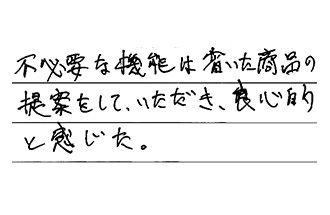 不必要な機能は省いた商品の
提案をして、いただき、良心的
と感じた。